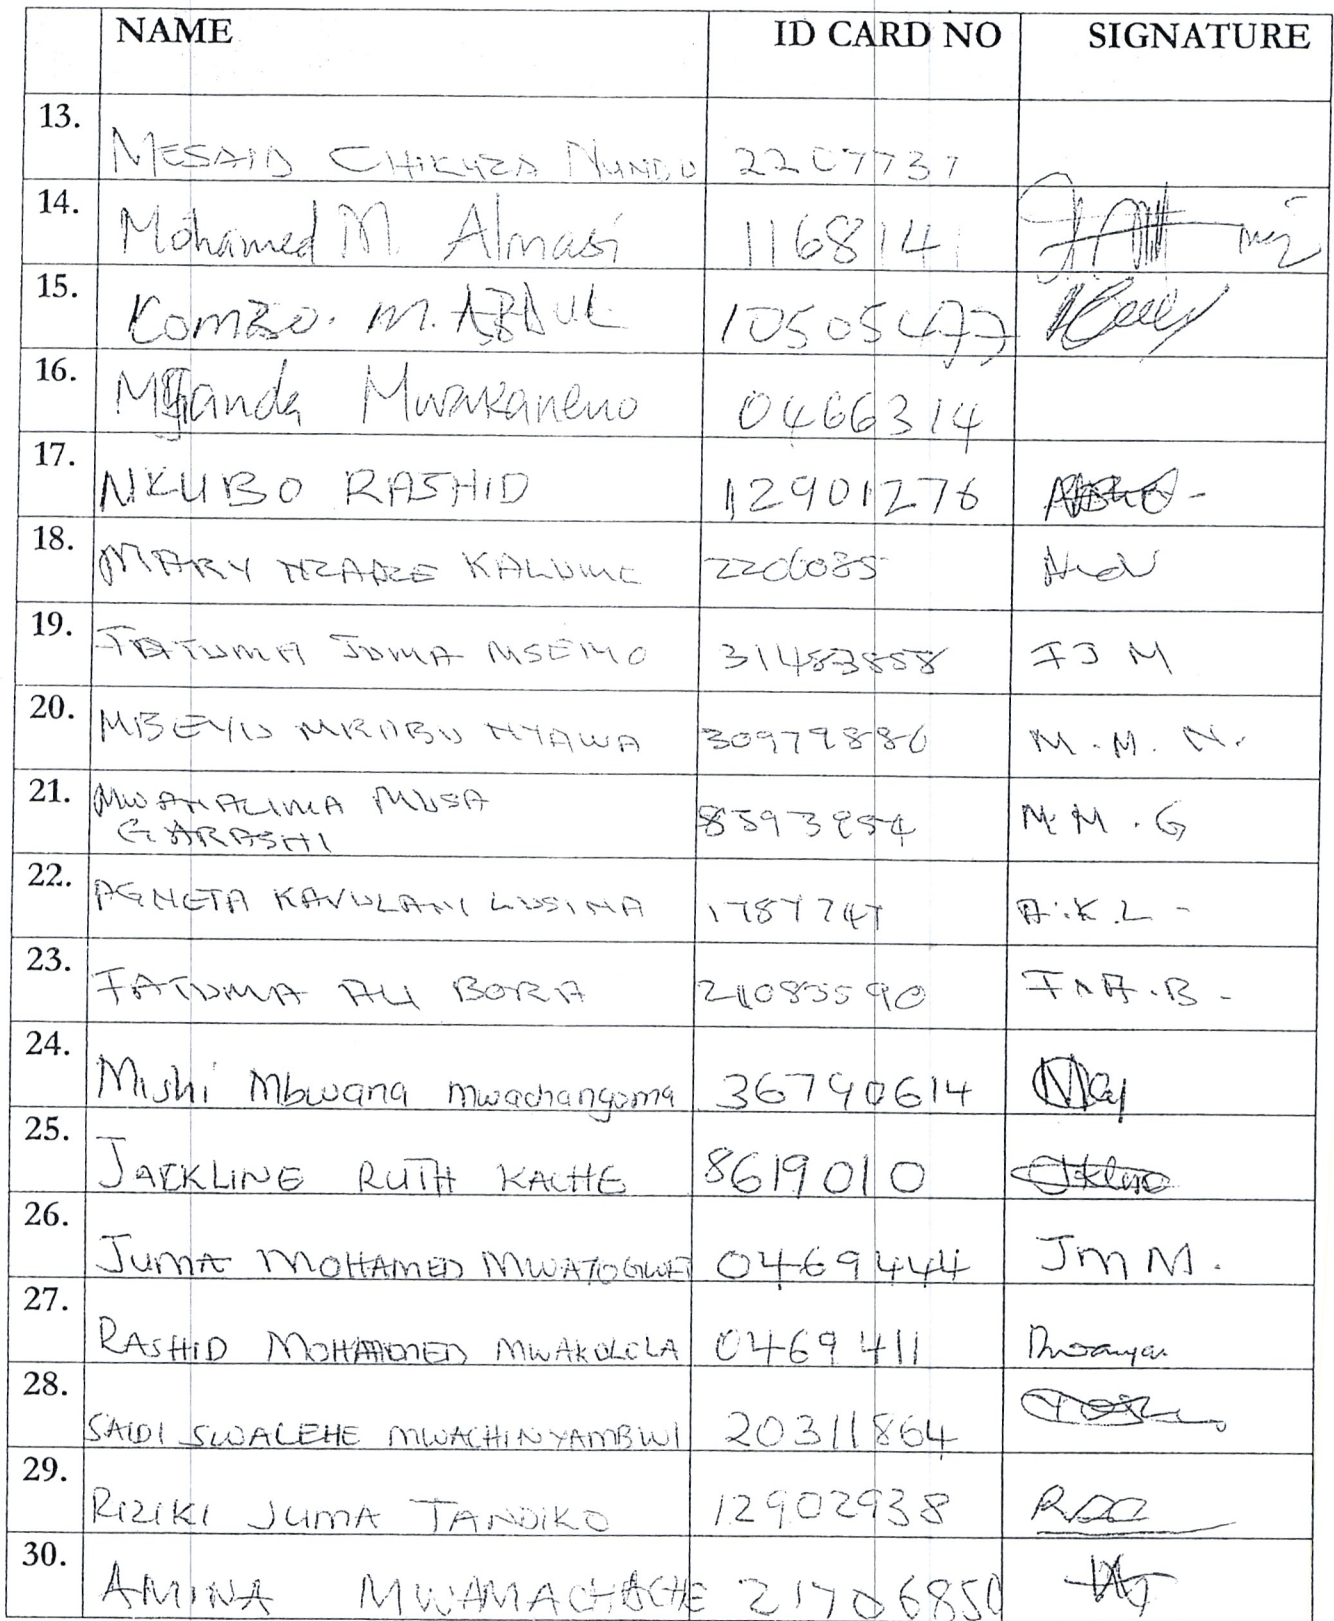 NAME ID CARD NO SIGNATURE
13. MESAID CHIKUZA NUNDU 2207737
14. Mohamed M. Almasi 1168141
15. Komzo. M. ABDUL 10505477
16. Mwakaneno 0466314
17. NKUBO RASHID 12901276
18. MARY NZADZE KALUME 2206085
19. FATUMA JUMA MSEMO 31483858 FJM
20. MBEYU MRABU NYAWA 30979880 M.M.N.
21. MWANALIMA MUSA
GARASHI 8593954 M.M.G
22. AGNETA KAVULANI LUSINA 1787747 A.K.L -
23. FATUMA ALI BORA 21085590 F.A.B -
24. Mishi Mbwana Mwachangoma 36790614
25. JACKLINE RUTH KACHE 8619010
26. JUMA MOHAMED MWATOGWE 0469444 JMM.
27. RASHID MOHAMMED MWAKOLOLA 0469411
28. SAIDI SWALEHE MWACHINYAMBWI 20311864
29. RIZIKI JUMA TANDIKO 12902938
30. AMINA MWAMACHACHE 21706850